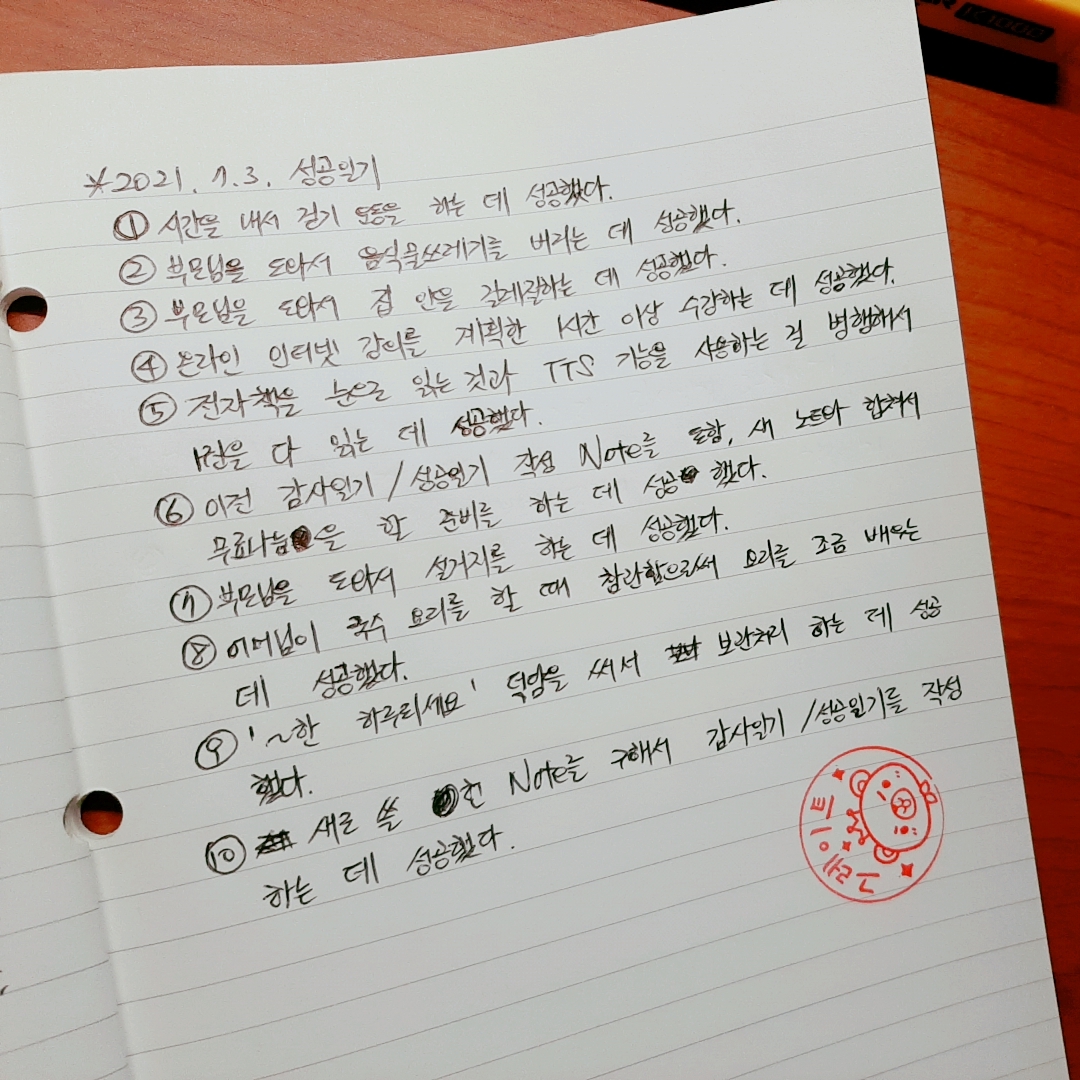 ※2021. 7. 3. 성공일기
① 시간을 내서 걷기 운동을 하는 데 성공했다.
② 부모님을 도와서 음식물쓰레기를 버리는 데 성공했다.
③ 부모님을 도와서 집 안을 걸레질하는 데 성공했다.
④ 온라인 인터넷 강의를 계획한 1시간 이상 수강하는 데 성공했다.
⑤ 전자책을 눈으로 읽는 것과 TTS 기능을 사용하는 걸 병행해서
1권을 다 읽는 데 성공했다.
⑥ 이전 감사일기/성공일기 작성 Note를 포함, 새 노트와 합쳐서
무료나눔을 할 준비를 하는 데 성공했다.
⑦ 부모님을 도와서 설거지를 하는 데 성공했다.
⑧ 어머님이 국수 요리를 할 때 참관함으로써 요리를 조금 배우는
데 성공했다.
⑨ '~한 하루되세요' 덕담을 써서 보관처리 하는 데 성공
했다.
⑩ 새로 쓸 헌 Note를 구해서 감사일기/성공일기를 작성
하는 데 성공했다.
그레이트